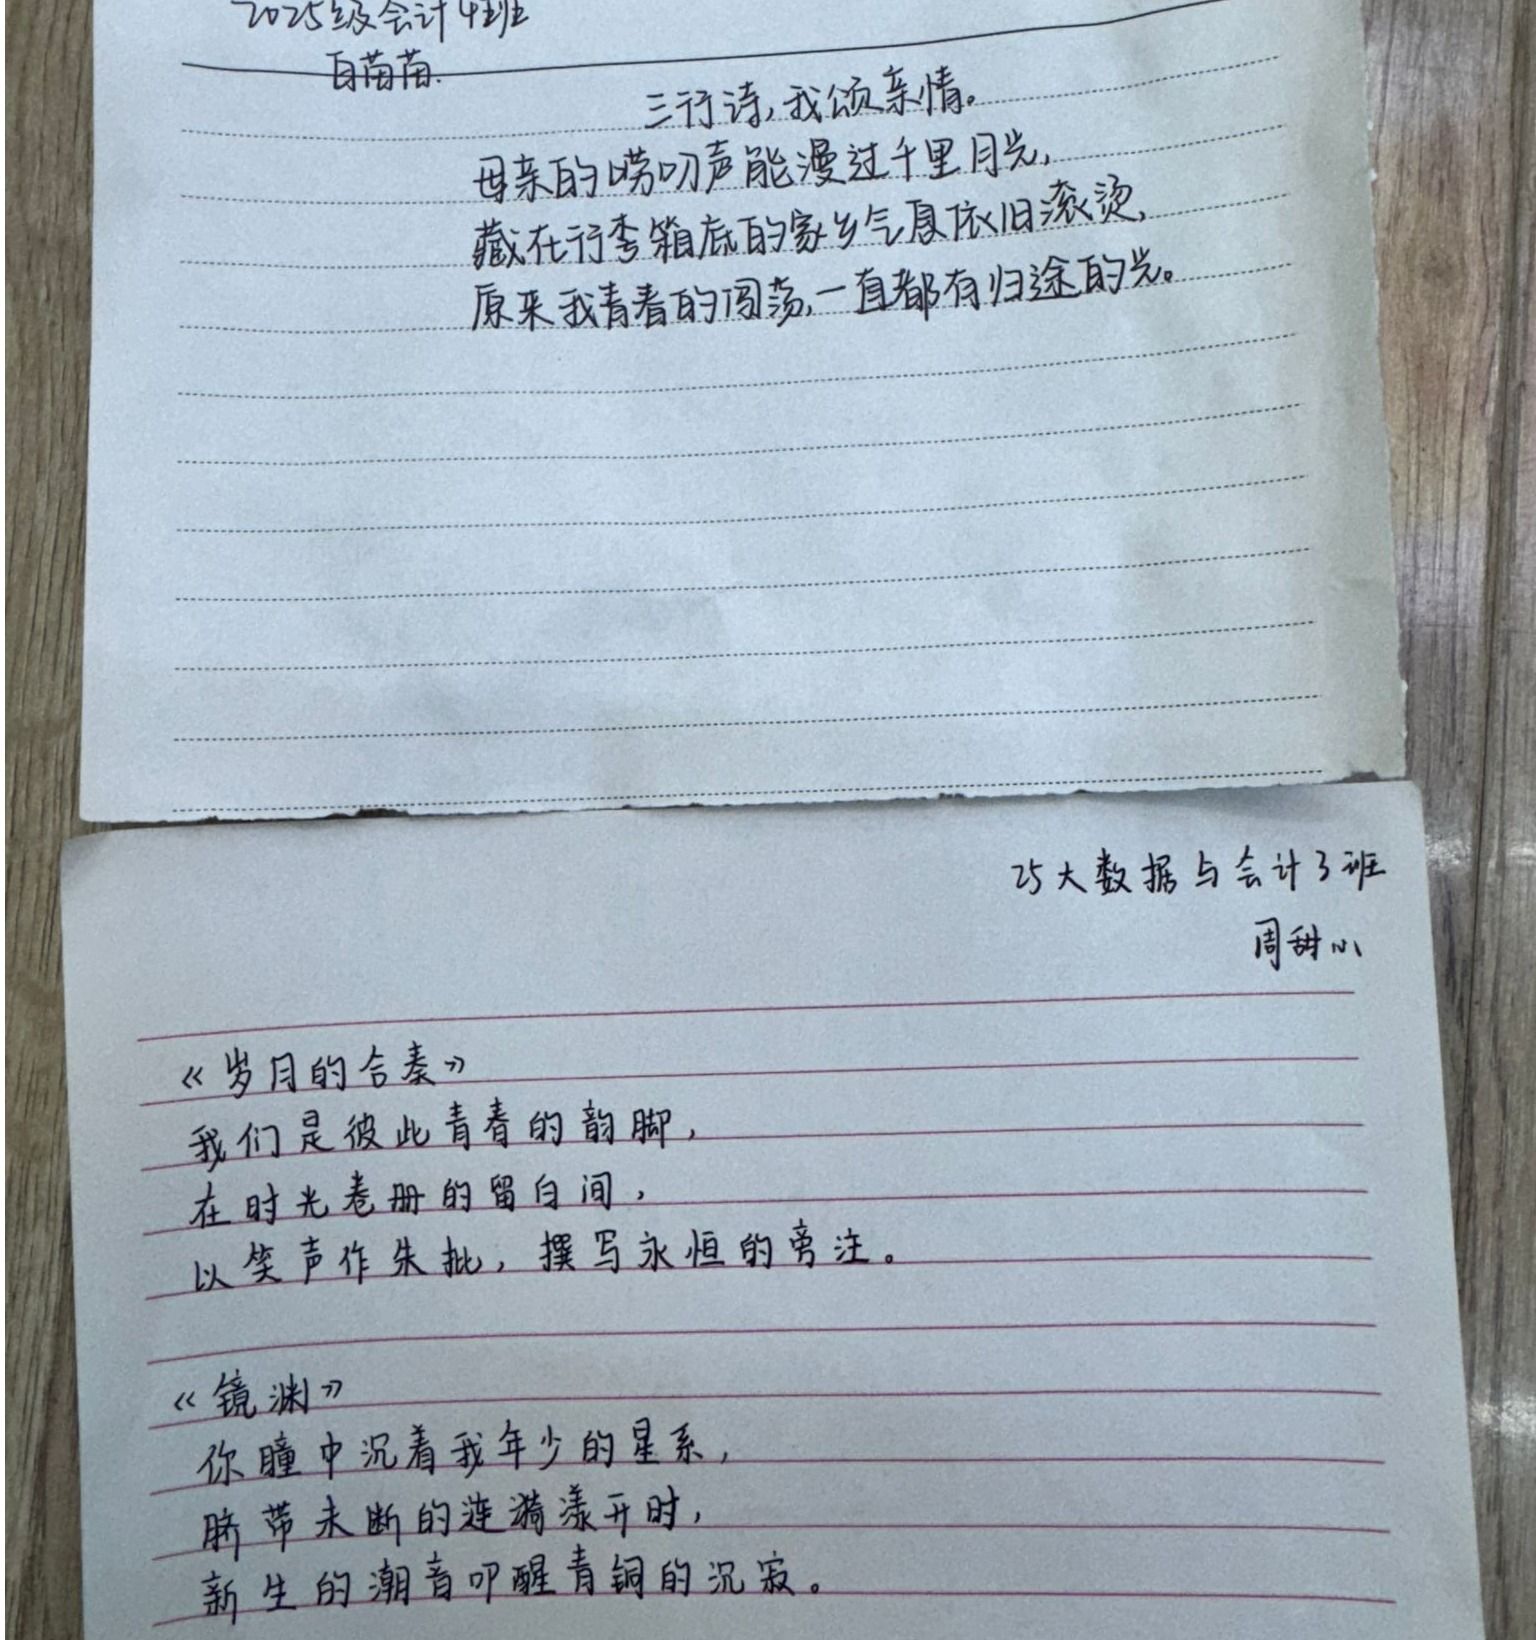 2025级会计4班
白苗苗.
三行诗,我颂亲情。
母亲的唠叨声能漫过千里月光,
藏在行李箱底的家乡气息依旧滚烫,
原来我青春的闯荡,一直都有归途的光。
25大数据与会计3班
周甜心
《岁月的合奏》
我们是彼此青春的韵脚,
在时光卷册的留白间,
以笑声作朱批,撰写永恒的旁注。
《镜渊》
你瞳中沉着我年少的星系,
脐带未断的涟漪漾开时,
新生的潮音叩醒青铜的沉寂。